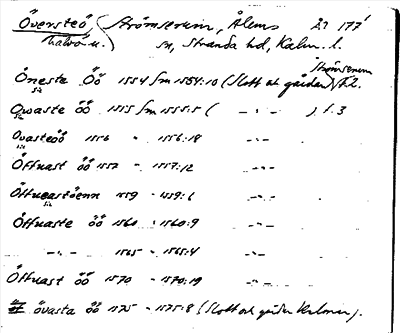 Översteö Strömserum, Ålems Ål 177¹
Thalrö u. sn, Stranda hd, Kalm. l.
Strömserum
Öneste Öö 1554 Sm 1554:10 (Slott och gården) f.l.
sic
Owaste öö 1555 Sm 1555:5 ( -"- ) f. 3
sic
Ovasteöö 1556 - 1556:18 -"-
sic
Öffuast öö 1557 - 1557:12 -"-
Öffueastöenn 1559 - 1559:6 -"-
sic
Öffuaste öö 1560 - 1560:9 -"-
-"- 1565 - 1565:4 -"-
Öffuast öö 1570 - 1570:19 -"-
övasta öö 1575 - 1575:8 (Slott och gården Kalmar).